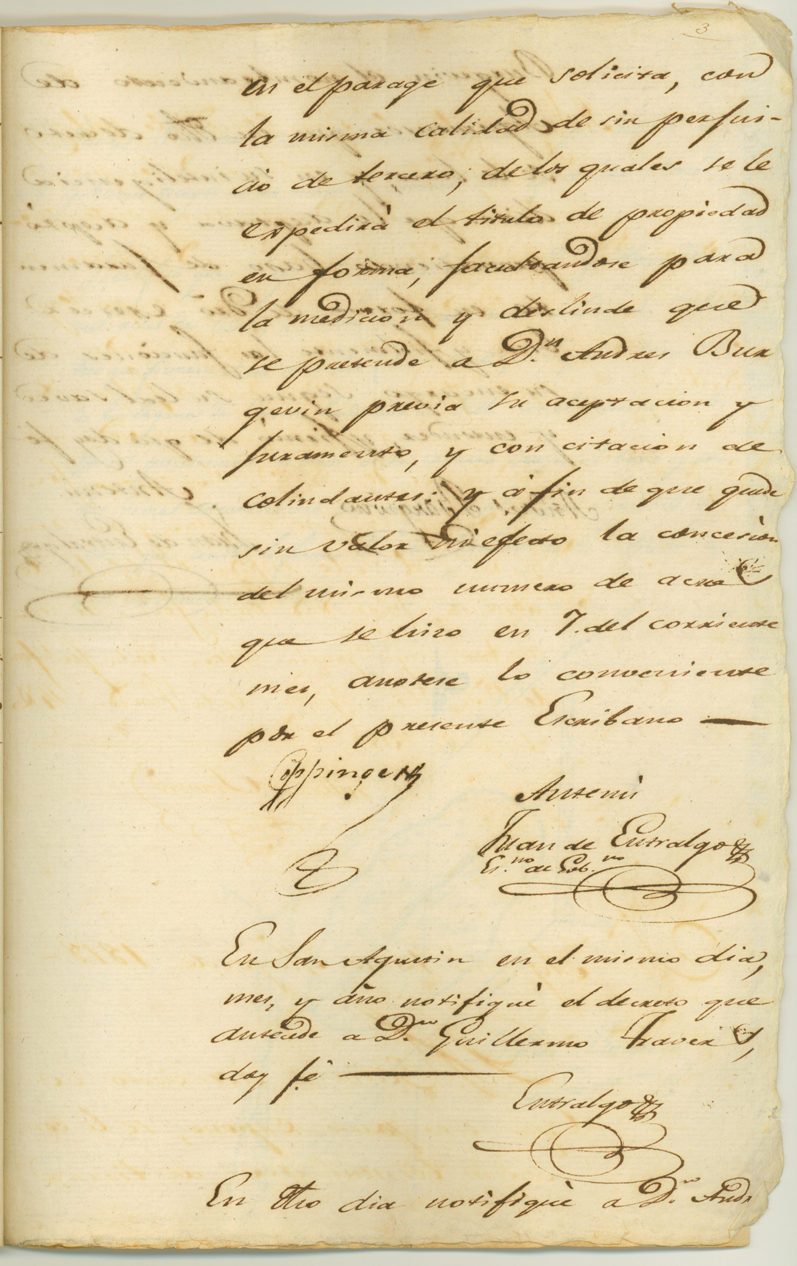 3
en el parage que solicita, con
la misma calidad de sin perjui-
cio de tercero; de los quales se le
expedirá el titulo de propiedad
en forma, facultandose para
la medicion y deslinde que
se pretende a Dn. Andres Bur
gevin previa su aceptacion y
juramento, y con citacion de
colindantes: y á fin de que quede
sin valor ni efecto la concesion
del mismo numero de acres
que se hizo en 7. del corriente
mes, anotese lo conveniente
por el presente Escribano —
Coppinger
Antemi
Juan de Entralgo
Es.no de Gob.no
En San Agustin en el mismo dia,
mes, y año notifiqué el decreto que
antecede a Dn. Guillermo Travers,
doy fé —
Entralgo
En dho dia notifiqué a Dn. Andr